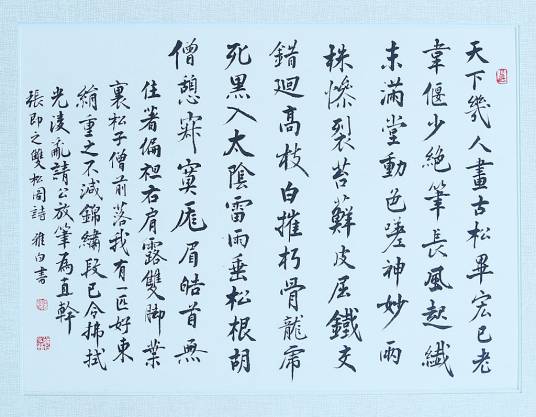 天下幾人畫古松畢宏已老
韋偃少絕筆長風起纖
末滿堂動色嗟神妙兩
株慘裂苔蘚皮屈鐵交
錯迴高枝白摧朽骨龍虎
死黑入太陰雷雨垂松根胡
僧憩寂寞厖眉皓首無
住著偏袒右肩露雙腳葉
裏松子僧前落我有一匹好東
絹重之不減錦繡段已令拂拭
光淩亂請公放筆為直幹
張即之雙松圖詩 雅白書